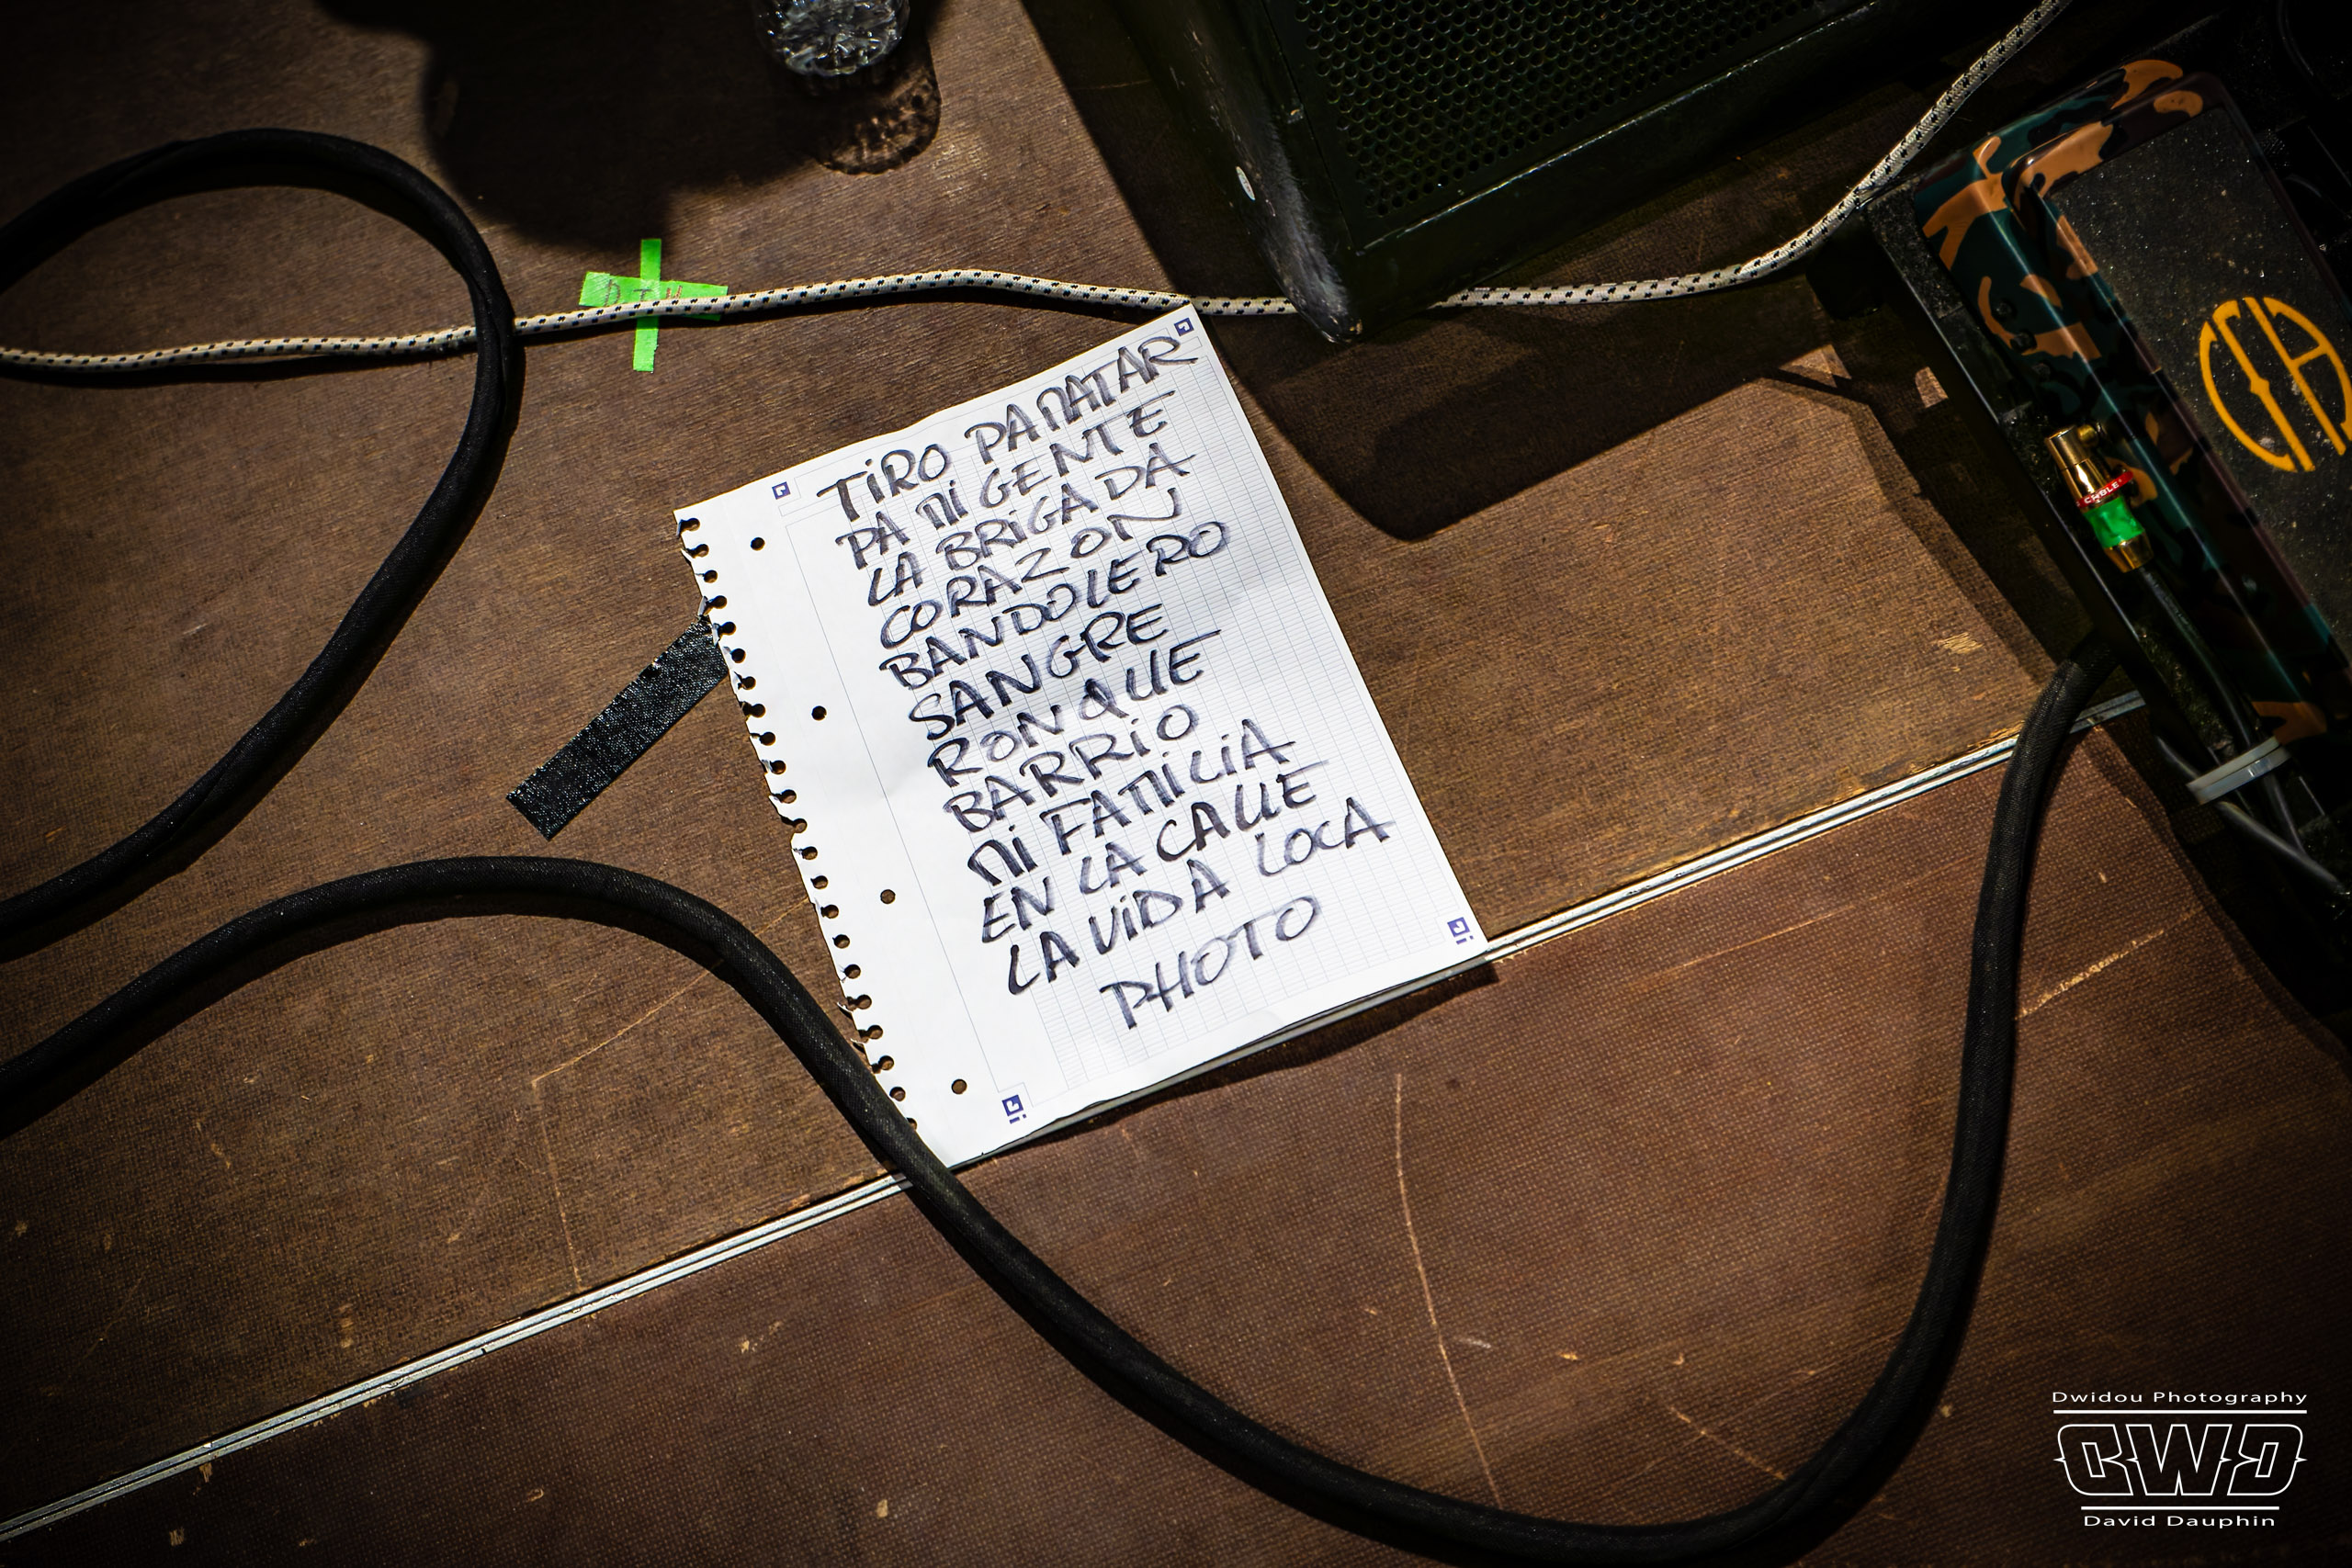 TIRO PA MATAR
PA MI GENTE
LA BRIGADA
CORAZON
BANDOLERO
SANGRE
RONQUE
BARRIO
MI FAMILIA
EN LA CALLE
LA VIDA LOCA
PHOTO
Dwidou Photography
DWD
David Dauphin